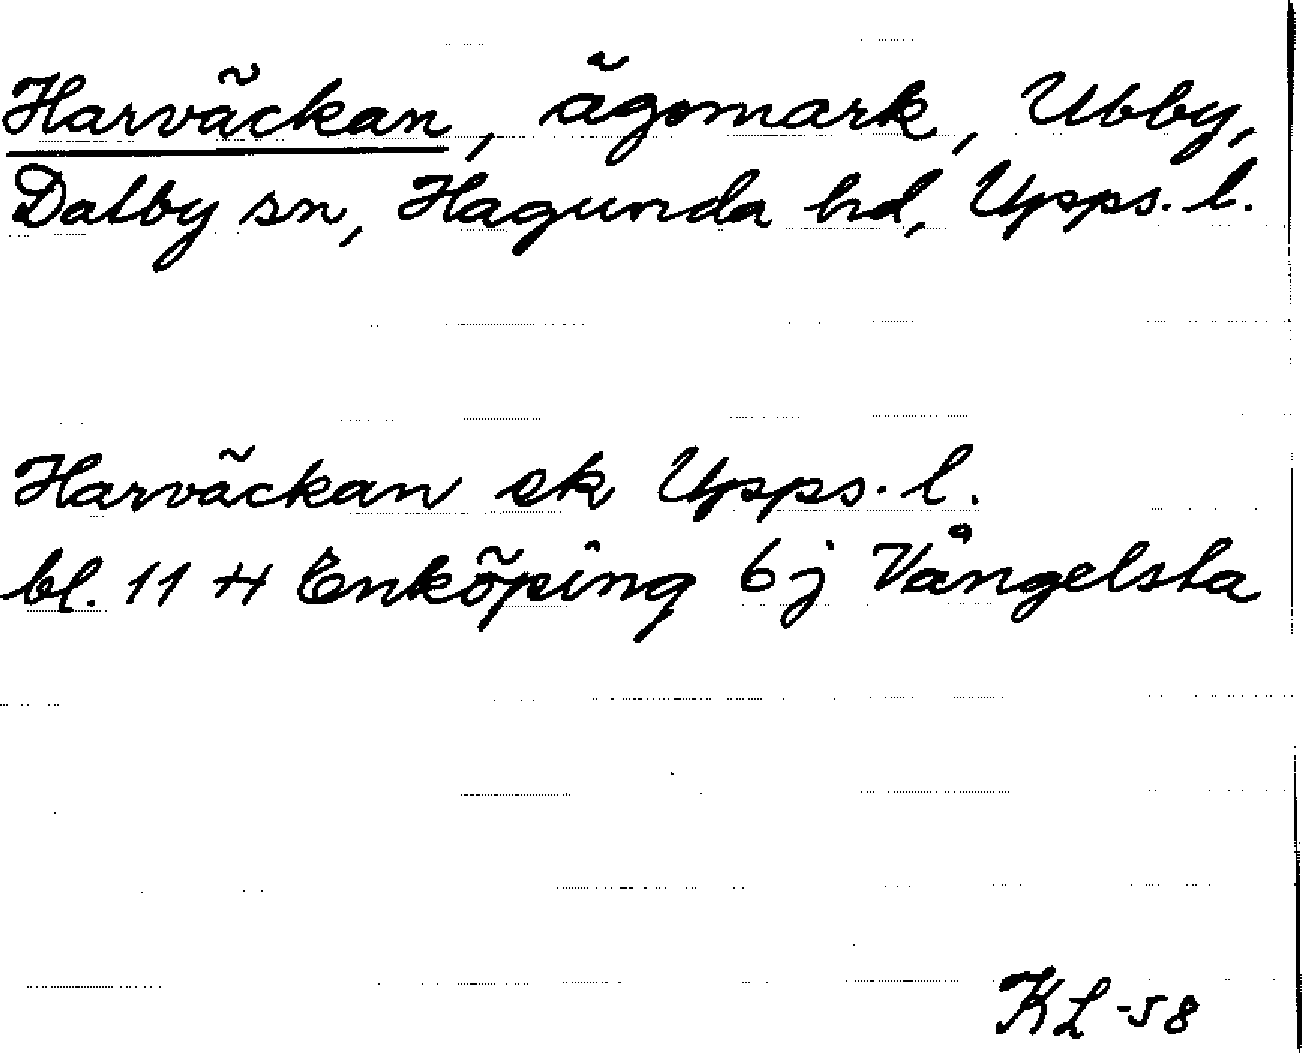 Harväckan, ägomark, Ubby,
Dalby sn, Hagunda hd, Upps. l.
Harväckan ek Upps. l.
bl. 11 H Enköping 6 j Vångelsta
KL -58